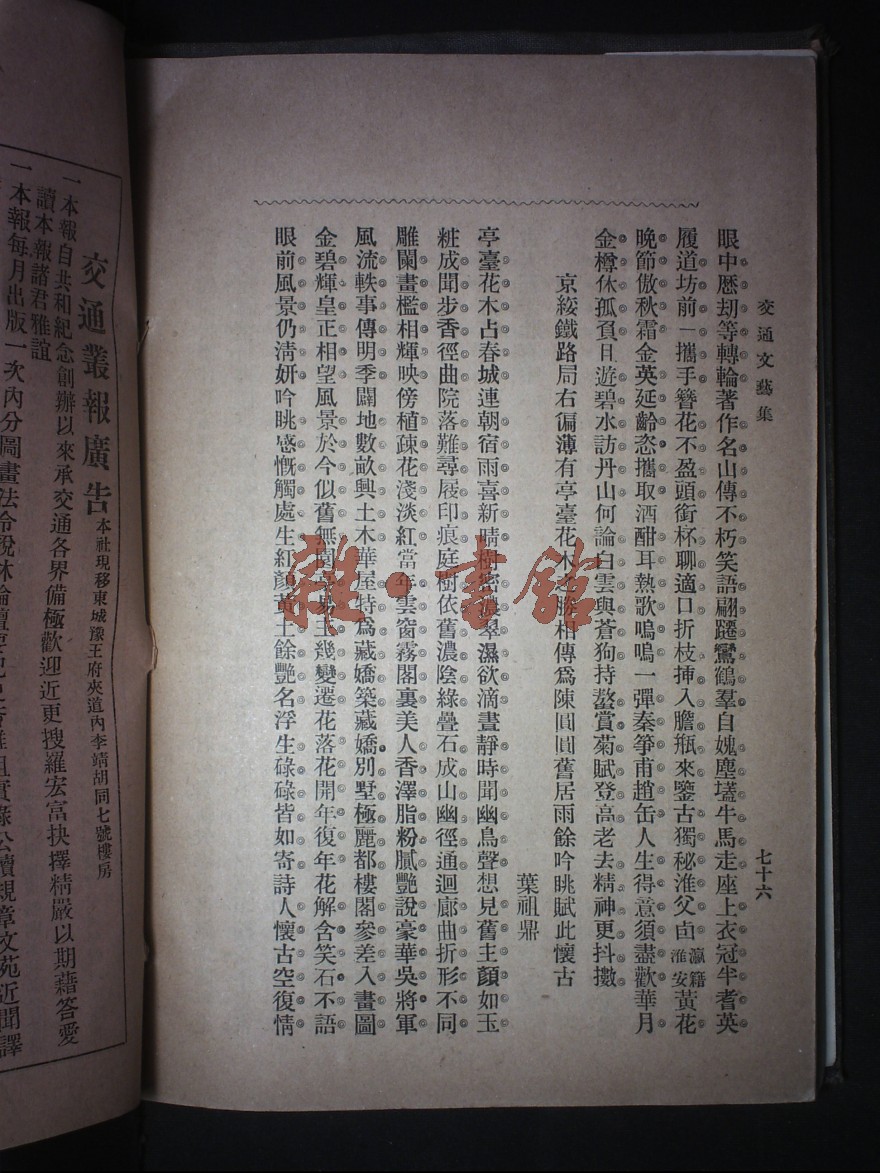 交通文藝集
七十六
眼中歷刼等轉輪著作名山傳不朽笑語翩躚鸞鶴羣自媿塵壒牛馬走座上衣冠半耆英
履道坊前一攜手簪花不盈頭銜杯聊適口折枝揷入膽瓶來鑒古獨秘淮父卣瀛籍淮安黃花
晚節傲秋霜金英延齡恣攜取酒酣耳熱歌嗚嗚一彈秦箏甫趙缶人生得意須盡歡華月
金樽休孤負日遊碧水訪丹山何論白雲與蒼狗持螯賞菊賦登高老去精神更抖擻
京綏鐵路局右偏薄有亭臺花木之勝相傳爲陳圓圓舊居雨餘吟眺賦此懷古
葉祖鼎
亭臺花木占春城連朝宿雨喜新晴樹密濃翠濕欲滴晝靜時聞幽鳥聲想見舊主顏如玉
粧成閒步香徑曲院落難尋屐印痕庭樹依舊濃陰綠疊石成山幽徑通迴廊曲折形不同
雕闌畫檻相輝映傍植疎花淺淡紅當年雲窗霧閣裏美人香澤脂粉膩艷說豪華吳將軍
風流軼事傳明季闢地數畝興土木華屋特爲藏嬌築藏嬌別墅極麗都樓閣參差入畫圖
金碧輝皇正相望風景於今似舊無園亭易主幾變遷花落花開年復年花解含笑石不語
眼前風景仍淸妍吟眺感慨觸處生紅顏黃土餘艷名浮生碌碌皆如寄詩人懷古空復情
交通叢報廣告本社現移東城豫王府夾道內李靖胡同七號樓房
一本報自共和紀念創辦以來承交通各界備極歡迎近更搜羅宏富抉擇精嚴以期藉答愛
讀本報諸君雅誼
一本報每月出版一次內分圖畫法令說林論壇要紀史實公牘規章文苑近聞譯
雜·書館